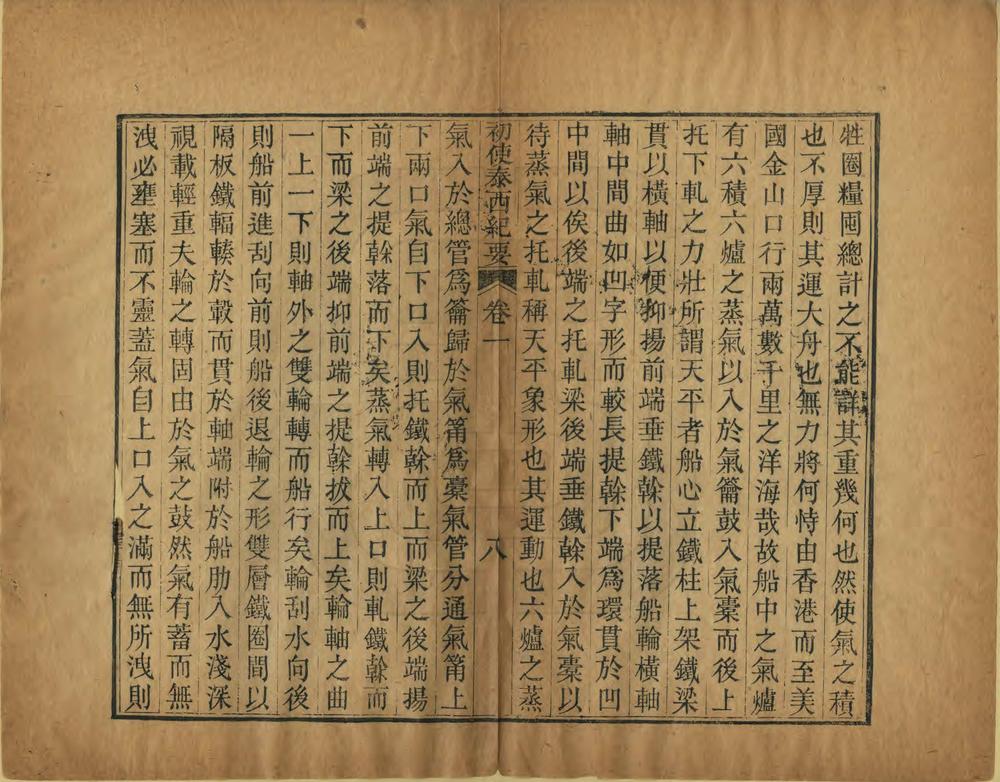 牲圈糧囤總計之不能詳其重幾何也然使氣之積
也不厚則其運大舟也無力將何恃由香港而至美
國金山口行兩萬數千里之洋海哉故船中之氣爐
有六積六爐之蒸氣以入於氣籥鼓入氣橐而後上
托下軋之力壯所謂天平者船心立鐵柱上架鐵梁
貫以橫軸以便抑揚前端垂鐵榦以提落船輪橫軸
軸中間曲如凹字形而較長提榦下端爲環貫於凹
中間以俟後端之托軋梁後端垂鐵榦入於氣橐以
待蒸氣之托軋稱天平象形也其運動也六爐之蒸
初使泰西紀要 卷一 八
氣入於總管爲籥歸於氣筩爲橐氣管分通氣筩上
下兩口氣自下口入則托鐵榦而上而梁之後端揚
前端之提榦落而下矣蒸氣轉入上口則軋鐵榦而
下而梁之後端抑前端之提榦拔而上矣輪軸之曲
一上一下則軸外之雙輪轉而船行矣輪刮水向後
則船前進刮向前則船後退輪之形雙層鐵圈間以
隔板鐵輻輳於轂而貫於軸端附於船肋入水淺深
視載輕重夫輪之轉固由於氣之鼓然氣有蓄而無
洩必壅塞而不靈蓋氣自上口入之滿而無所洩則